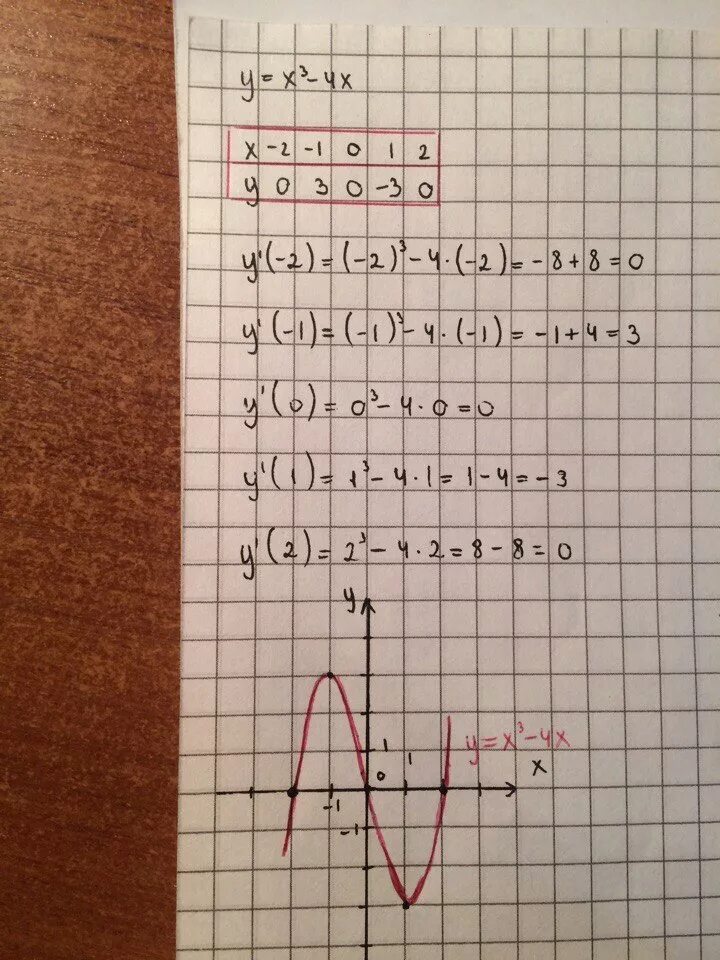 y = x³ - 4x
x -2 -1 0 1 2
y 0 3 0 -3 0
y'(-2) = (-2)³ - 4·(-2) = -8 + 8 = 0
y'(-1) = (-1)³ - 4·(-1) = -1 + 4 = 3
y'(0) = 0³ - 4·0 = 0
y'(1) = 1³ - 4·1 = 1 - 4 = -3
y'(2) = 2³ - 4·2 = 8 - 8 = 0
y
y = x³ - 4x
1
1
x
0
-1
-1